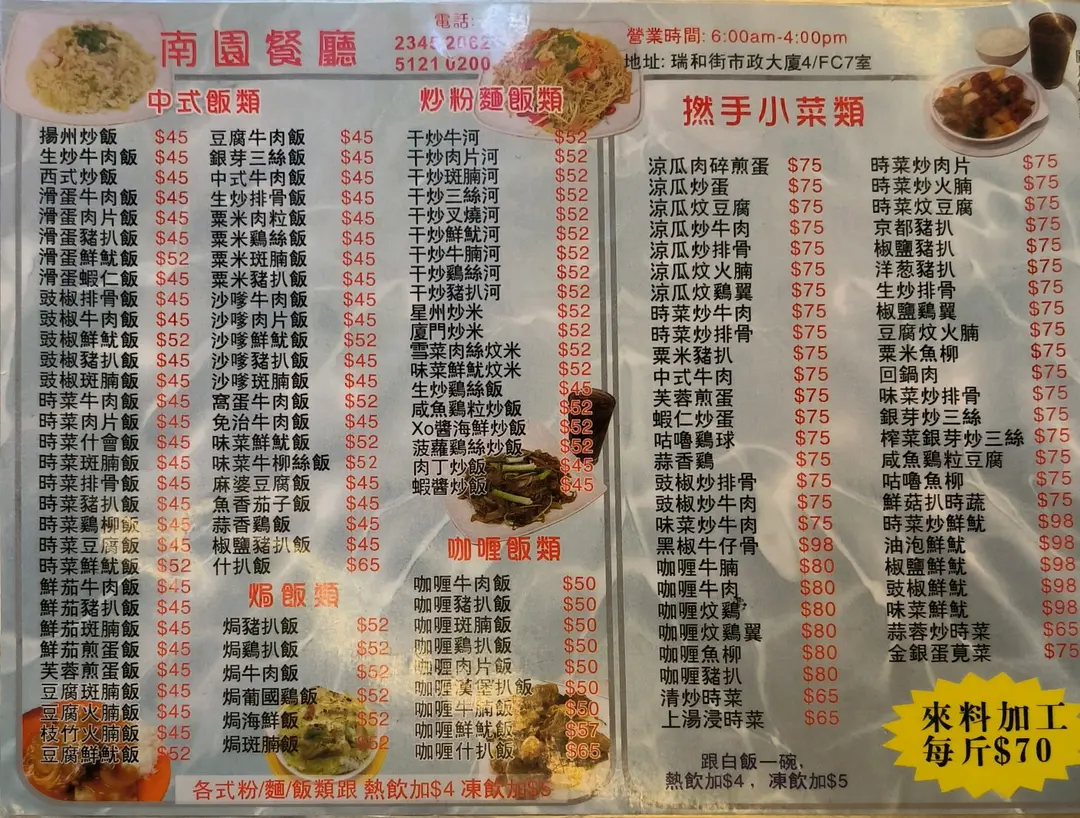 南園餐廳
電話:
2345 2062
5121 0200
營業時間: 6:00am-4:00pm
地址: 瑞和街市政大廈4/FC7室
中式飯類
揚州炒飯 $45
生炒牛肉飯 $45
西式炒飯 $45
滑蛋牛肉飯 $45
滑蛋肉片飯 $45
滑蛋豬扒飯 $45
滑蛋鮮魷飯 $52
滑蛋蝦仁飯 $45
豉椒排骨飯 $45
豉椒牛肉飯 $45
豉椒鮮魷飯 $52
豉椒豬扒飯 $45
豉椒斑腩飯 $45
時菜牛肉飯 $45
時菜肉片飯 $45
時菜什會飯 $45
時菜斑腩飯 $45
時菜排骨飯 $45
時菜豬扒飯 $45
時菜鷄柳飯 $45
時菜豆腐飯 $45
時菜鮮魷飯 $52
鮮茄牛肉飯 $45
鮮茄豬扒飯 $45
鮮茄斑腩飯 $45
鮮茄煎蛋飯 $45
芙蓉煎蛋飯 $45
豆腐斑腩飯 $45
豆腐火腩飯 $45
枝竹火腩飯 $45
豆腐鮮魷飯 $52
豆腐牛肉飯 $45
銀芽三絲飯 $45
中式牛肉飯 $45
生炒排骨飯 $45
粟米肉粒飯 $45
粟米鷄絲飯 $45
粟米斑腩飯 $45
粟米豬扒飯 $45
沙嗲牛肉飯 $45
沙嗲肉片飯 $45
沙嗲鮮魷飯 $52
沙嗲豬扒飯 $45
沙嗲斑腩飯 $45
窩蛋牛肉飯 $52
免治牛肉飯 $45
味菜鮮魷飯 $52
味菜牛柳絲飯 $52
麻婆豆腐飯 $45
魚香茄子飯 $45
蒜香鷄飯 $45
椒鹽豬扒飯 $45
什扒飯 $65
焗飯類
焗豬扒飯 $52
焗鷄扒飯 $52
焗牛肉飯 $52
焗葡國鷄飯 $52
焗海鮮飯 $52
焗斑腩飯 $52
炒粉麵飯類
干炒牛河 $52
干炒肉片河 $52
干炒斑腩河 $52
干炒三絲河 $52
干炒叉燒河 $52
干炒鮮魷河 $52
干炒牛腩河 $52
干炒鷄絲河 $52
干炒豬扒河 $52
星州炒米 $52
廈門炒米 $52
雪菜肉絲炆米 $52
味菜鮮魷炆米 $52
生炒鷄絲飯 $45
咸魚鷄粒炒飯 $52
Xo醬海鮮炒飯 $52
菠蘿鷄絲炒飯 $52
肉丁炒飯 $45
蝦醬炒飯 $45
咖喱飯類
咖喱牛肉飯 $50
咖喱豬扒飯 $50
咖喱斑腩飯 $50
咖喱鷄扒飯 $50
咖喱肉片飯 $50
咖喱漢堡扒飯 $50
咖喱牛腩飯 $50
咖喱鮮魷飯 $57
咖喱什扒飯 $65
各式粉/麵/飯類跟 熱飲加$4 凍飲加$5
撚手小菜類
涼瓜肉碎煎蛋 $75
涼瓜炒蛋 $75
涼瓜炆豆腐 $75
涼瓜炒牛肉 $75
涼瓜炒排骨 $75
涼瓜炆火腩 $75
涼瓜炆鷄翼 $75
時菜炒牛肉 $75
時菜炒排骨 $75
粟米豬扒 $75
中式牛肉 $75
芙蓉煎蛋 $75
蝦仁炒蛋 $75
咕嚕鷄球 $75
蒜香鷄 $75
豉椒炒排骨 $75
豉椒炒牛肉 $75
味菜炒牛肉 $75
黑椒牛仔骨 $98
咖喱牛腩 $80
咖喱牛肉 $80
咖喱炆鷄 $80
咖喱炆鷄翼 $80
咖喱魚柳 $80
咖喱豬扒 $80
清炒時菜 $65
上湯浸時菜 $65
時菜炒肉片 $75
時菜炒火腩 $75
時菜炆豆腐 $75
京都豬扒 $75
椒鹽豬扒 $75
洋葱豬扒 $75
生炒排骨 $75
椒鹽鷄翼 $75
豆腐炆火腩 $75
粟米魚柳 $75
回鍋肉 $75
味菜炒排骨 $75
銀芽炒三絲 $75
榨菜銀芽炒三絲 $75
咸魚鷄粒豆腐 $75
咕嚕魚柳 $75
鮮菇扒時蔬 $75
時菜炒鮮魷 $98
油泡鮮魷 $98
椒鹽鮮魷 $98
豉椒鮮魷 $98
味菜鮮魷 $98
蒜蓉炒時菜 $65
金銀蛋莧菜 $75
跟白飯一碗,
熱飲加$4， 凍飲加$5
來料加工
每斤$70